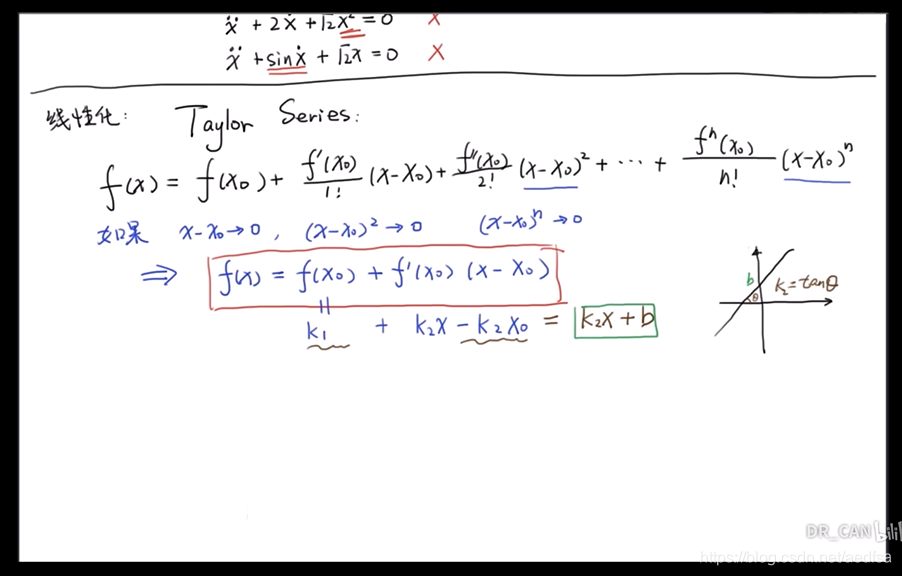 ẍ + 2ẋ + √2x² = 0 X
ẍ + sinẋ + √2x = 0 X
线性化: Taylor Series:
f(x) = f(x₀) + f'(x₀)/1! (x-x₀) + f''(x₀)/2! (x-x₀)² + ⋯ + fⁿ(x₀)/n! (x-x₀)ⁿ
如果 x-x₀→0 , (x-x₀)²→0 (x-x₀)ⁿ→0
⇒ f(x) = f(x₀) + f'(x₀) (x-x₀)
k₁ + k₂x - k₂x₀ = k₂x + b
b θ k₂=tanθ
DR_CAN bili
https://blog.csdn.net/aedfsa